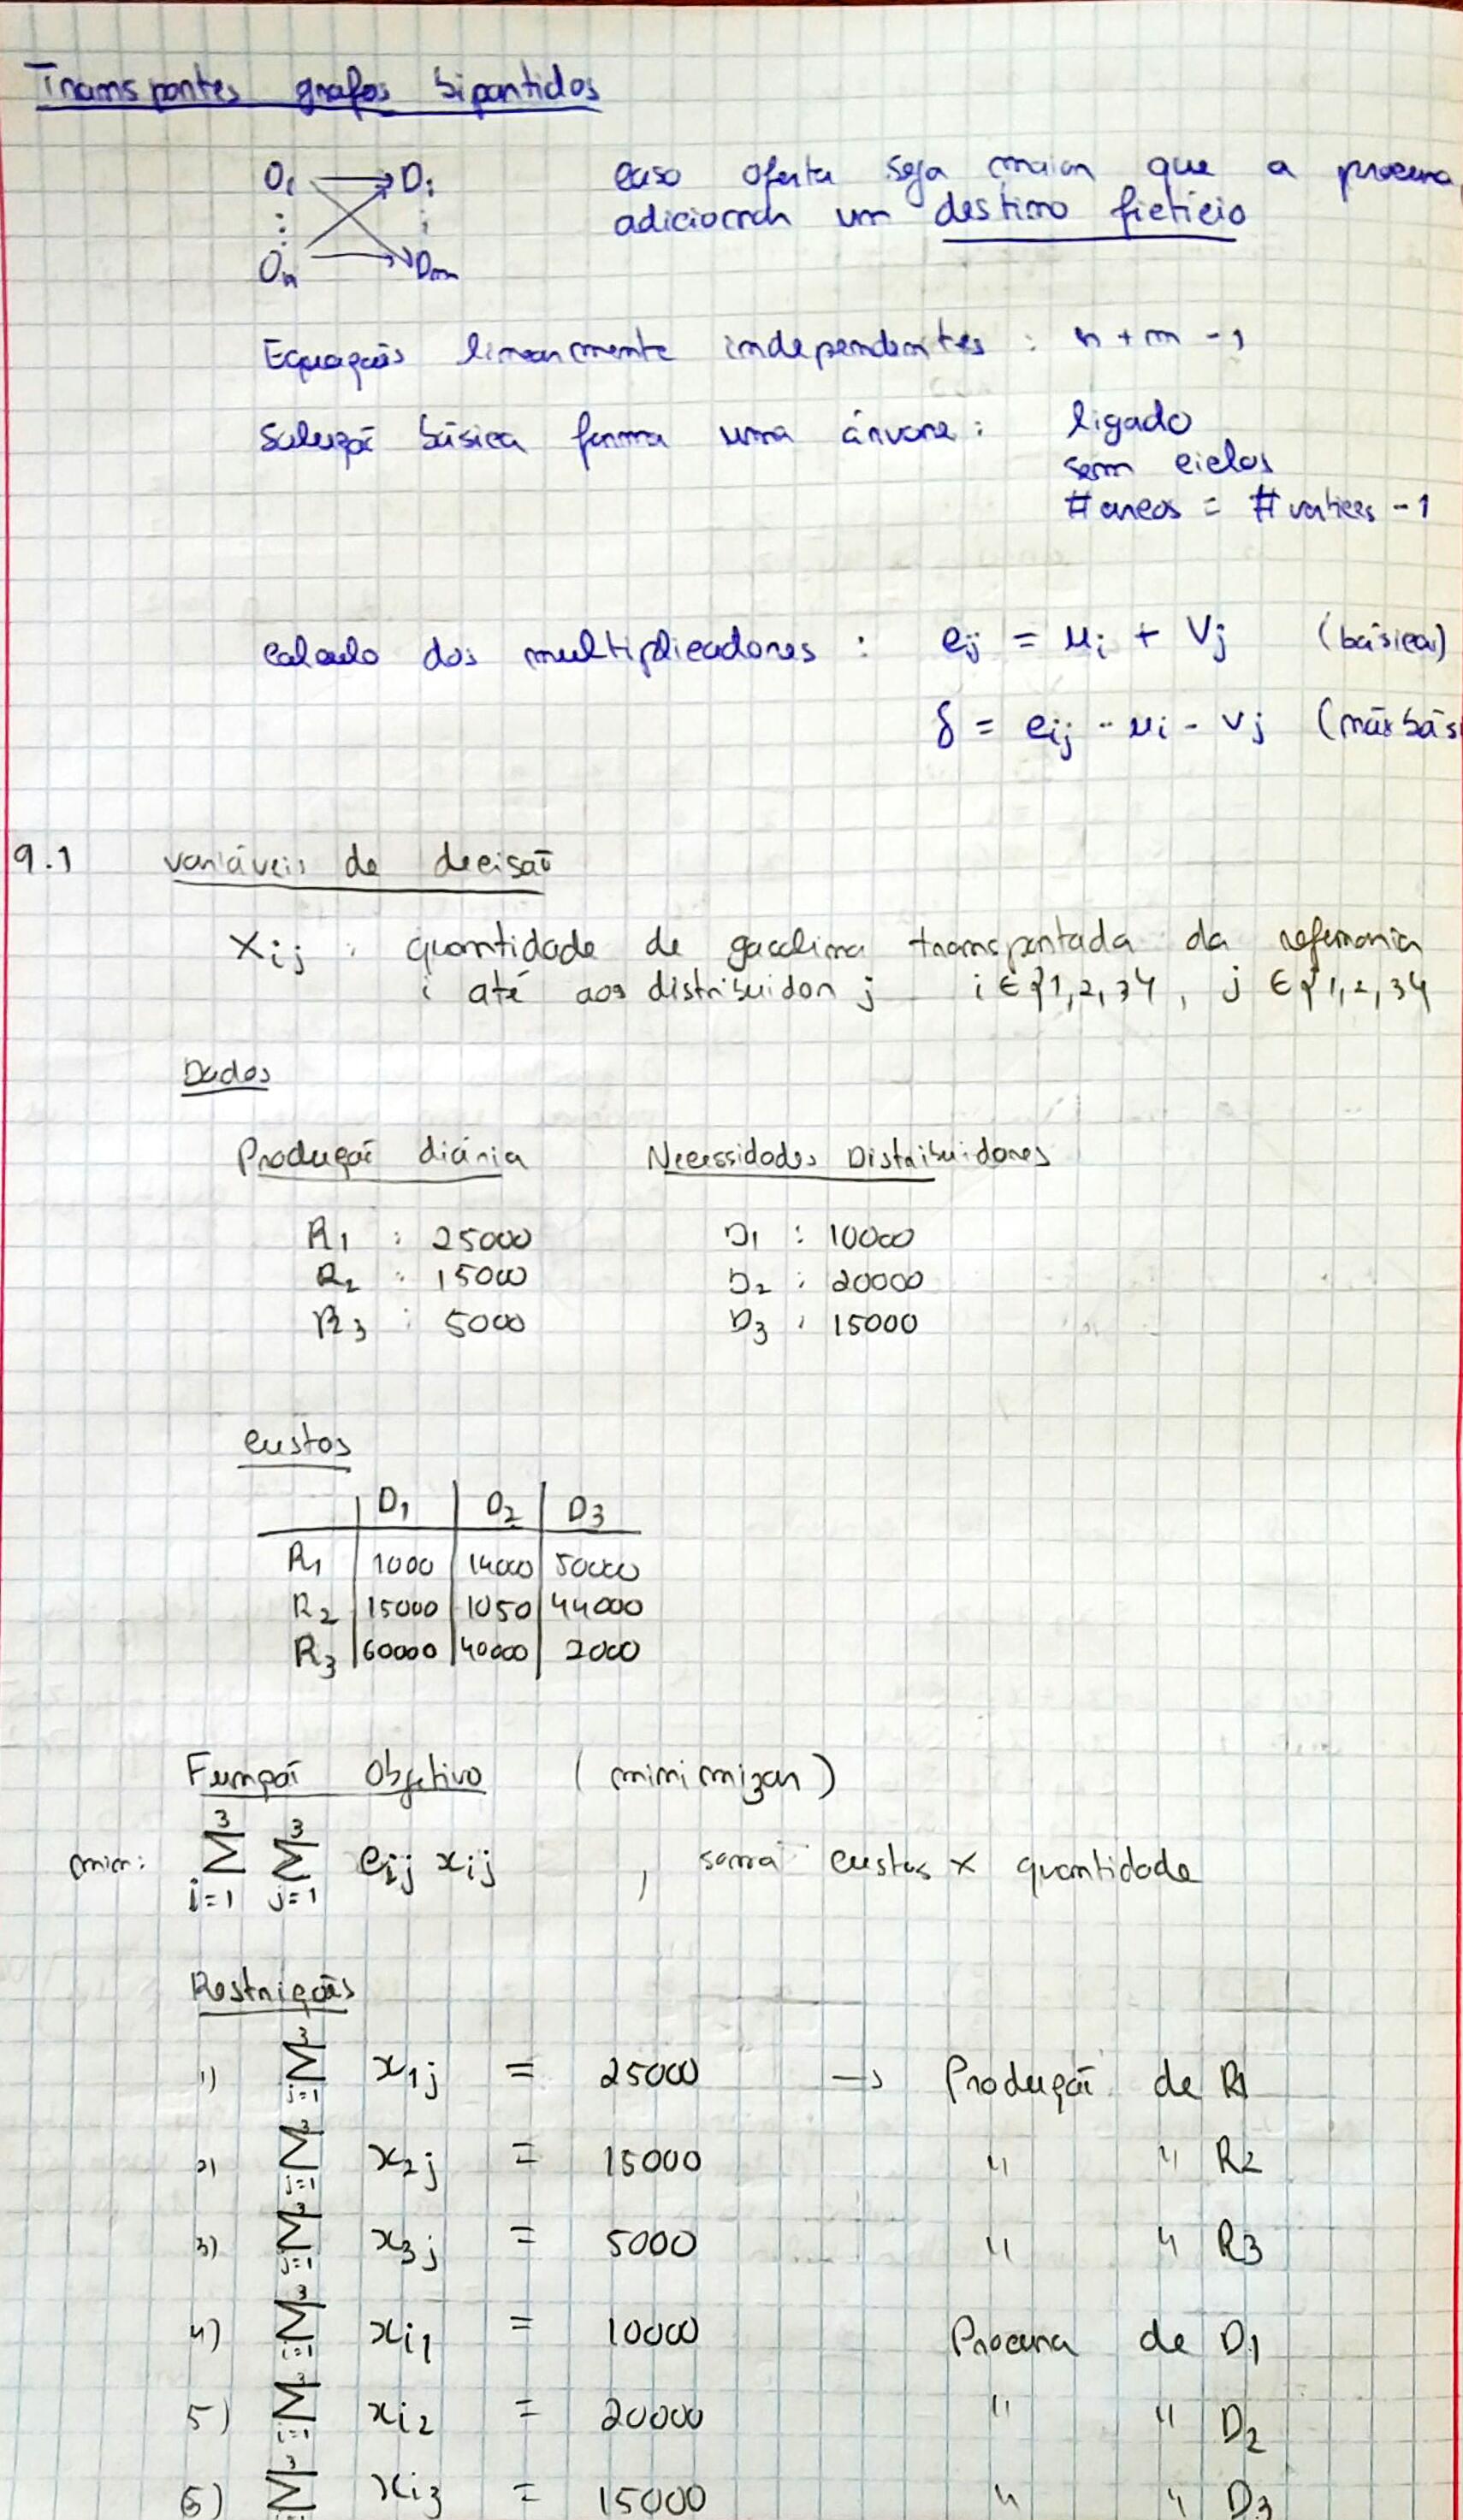 Transportes grafos bipartidos
O1 → D1 caso oferta seja maior que a procura,
⋮ ⋮ adicionar um destino fictício
On Dm
Equações linearmente independentes : n + m - 1
Solução básica forma uma árvore : ligado
sem ciclos
# arcos = # vertices - 1
calculo dos multiplicadores : cij = ui + vj (básica)
δ = cij - ui - vj (não bás
9.1 variáveis de decisão
Xij : quantidade de gasolina transportada da refinaria
i até aos distribuidor j i ∈ {1,2,3}, j ∈ {1,2,3}
Dados
Produção diária Necessidades Distribuidores
R1 : 25000 D1 : 10000
R2 : 15000 D2 : 20000
R3 : 5000 D3 : 15000
custos
D1 | D2 | D3
R1 | 1000 | 14000 | 50000
R2 | 15000 | 1050 | 44000
R3 | 60000 | 40000 | 2000
Função Objetivo (minimizar)
min: ∑_{i=1}^{3} ∑_{j=1}^{3} cij xij , soma custos × quantidade
Restrições
1) ∑_{j=1}^{3} x1j = 25000 → Produção de R1
2) ∑_{j=1}^{3} x2j = 15000 " " R2
3) ∑_{j=1}^{3} x3j = 5000 " " R3
4) ∑_{i=1}^{3} xi1 = 10000 Procura de D1
5) ∑_{i=1}^{3} xi2 = 20000 " " D2
6) ∑ xi3 = 15000 " " D3